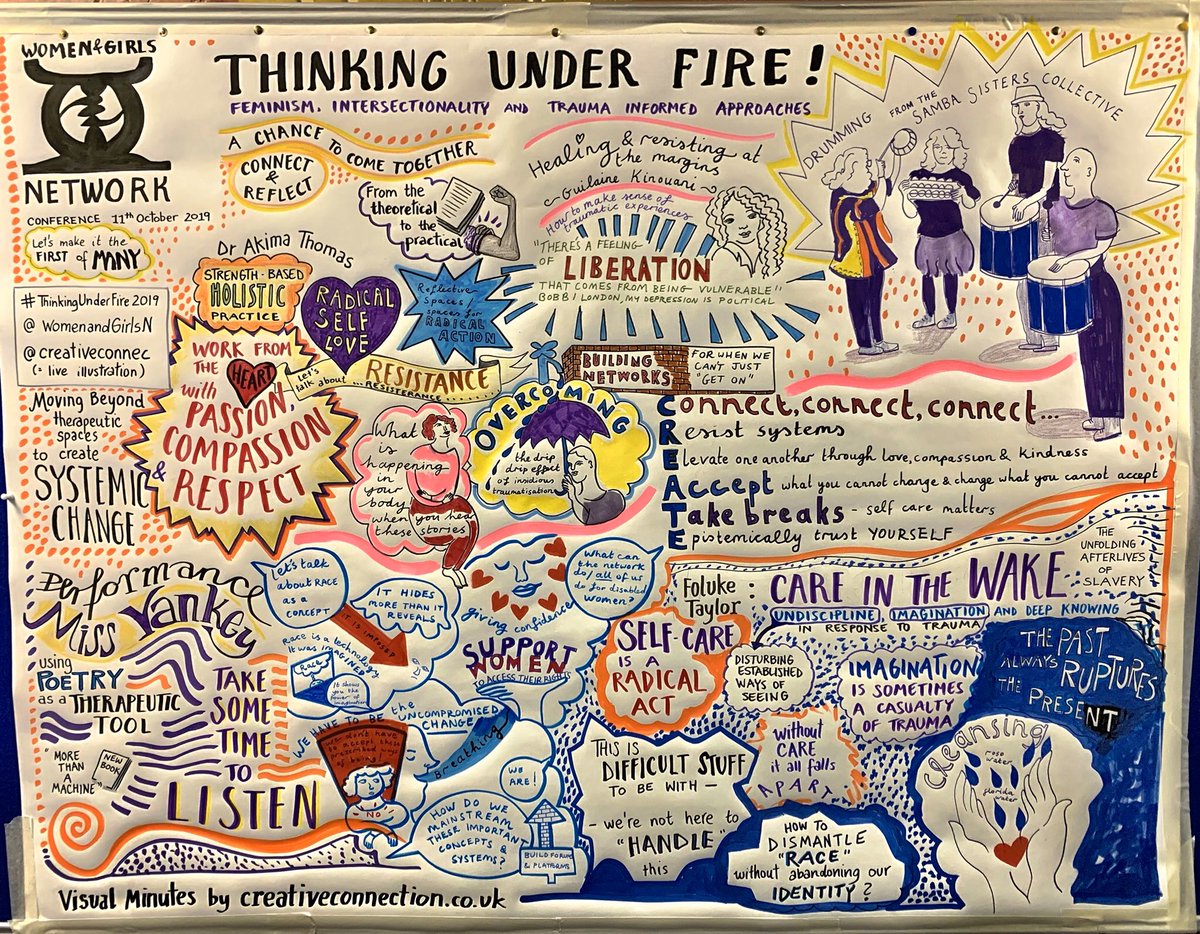 WOMEN & GIRLS
NETWORK
CONFERENCE 11th October 2019
Let's make it the
FIRST of MANY
#ThinkingUnderFire2019
@womenandGirlsN
@creativeconnec
(= live illustration)
THINKING UNDER FIRE!
FEMINISM, INTERSECTIONALITY AND TRAUMA INFORMED APPROACHES
A CHANCE TO COME TOGETHER
CONNECT
&
REFLECT
From the
theoretical
to the
practical
Healing & resisting at
the margins
- Guilaine Kinouani -
How to make sense of
traumatic experiences
"THERE'S A FEELING
OF LIBERATION
THAT COMES FROM BEING VULNERABLE"
BOBBI LONDON, MY DEPRESSION IS POLITICAL
DRUMMING FROM THE
SAMBA SISTERS COLLECTIVE
Dr Akima Thomas
STRENGTH-BASED
HOLISTIC
PRACTICE
RADICAL
SELF
LOVE
Reflective
spaces/
spaces for
RADICAL
ACTION
WORK FROM
THE HEART
with
PASSION,
COMPASSION
& RESPECT
Let's
talk about
RESISTANCE
BUILDING
NETWORKS
FOR WHEN WE
CAN'T JUST
"GET ON"
Moving Beyond
therapeutic
spaces
to create
SYSTEMIC
CHANGE
What
is
happening
in
your
body
when you hear
these stories
OVERCOMING
the drip
drip effect
of insidious
traumatisation
Connect, connect, connect...
Resist systems
Elevate one another through love, compassion & kindness
Accept what you cannot change & change what you cannot accept
Take breaks - self care matters
Epistemically trust YOURSELF
Performance
Miss Yankey
using
POETRY
as a THERAPEUTIC
TOOL
"MORE
THAN
A
MACHINE"
NEW
BOOK
TAKE
SOME
TIME
TO
LISTEN
Let's talk
about RACE
as a
concept
IT HIDES
MORE THAN IT
REVEALS
IT IS IMPOSED
Race is a technology
It was imagined
Race
It shows
you the
power of
imagination
giving confidence
What can
the network
do/all of us
do for disabled
women?
SUPPORT
WOMEN
TO ACCESS THEIR RIGHTS
the
UNCOMPROMISED
CHANGE
Breathing
WE HAVE TO BE
We don't have
to accept these
prescribed ways
of being!
NO
WE
ARE!
HOW DO WE
MAINSTREAM
THESE IMPORTANT
CONCEPTS &
SYSTEMS?
BUILD FORUMS
& PLATFORMS
Foluke
Taylor : CARE IN THE WAKE
UNDISCIPLINE, IMAGINATION AND DEEP KNOWING
IN RESPONSE TO TRAUMA
THE
UNFOLDING
AFTERLIVES
OF
SLAVERY
SELF-CARE
IS A
RADICAL
ACT
DISTURBING
ESTABLISHED
WAYS OF
SEEING
IMAGINATION
IS SOMETIMES
A CASUALTY
OF TRAUMA
THE PAST
ALWAYS RUPTURES
THE PRESENT
THIS IS
DIFFICULT STUFF
TO BE WITH -
- we're not here to
"HANDLE"
this
Without
CARE
it all falls
APART
HOW TO
DISMANTLE
"RACE"
without abandoning our
IDENTITY?
cleansing
rose
water
florida
water
Visual Minutes by creativeconnection.co.uk